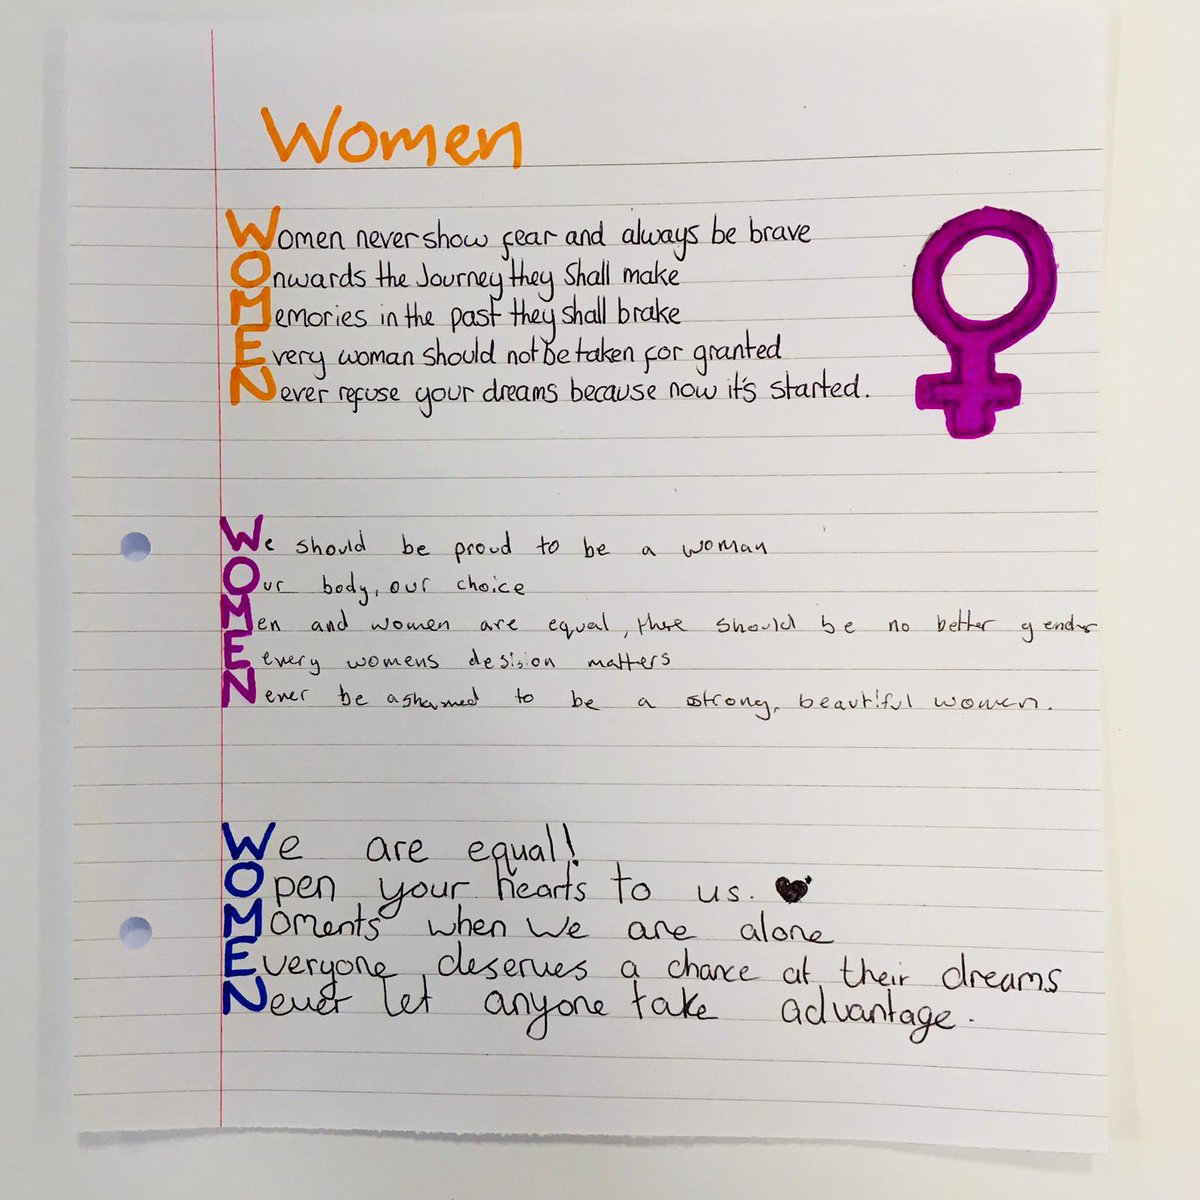 Women
Women never show fear and always be brave
Onwards the Journey they Shall make
Memories in the past they shall brake
Every woman should not be taken for granted
Never refuse your dreams because now it's started.
We should be proud to be a woman
Our body, our choice
Men and women are equal, there should be no better gender
Every womens desision matters
Never be ashamed to be a strong, beautiful women.
We are equal!
Open your hearts to us.
Moments when we are alone
Everyone deserves a chance at their dreams
Never let anyone take advantage.